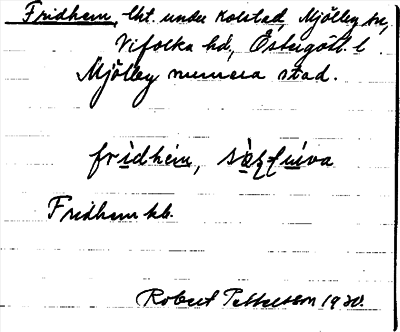 Fridhem, lht. under Kolstad, Mjölby sn,
Vifolka hd, Östergötl. l.
Mjölby numera stad.
fridhem,
Fridhem kb.
Robert Pettersson 1930.